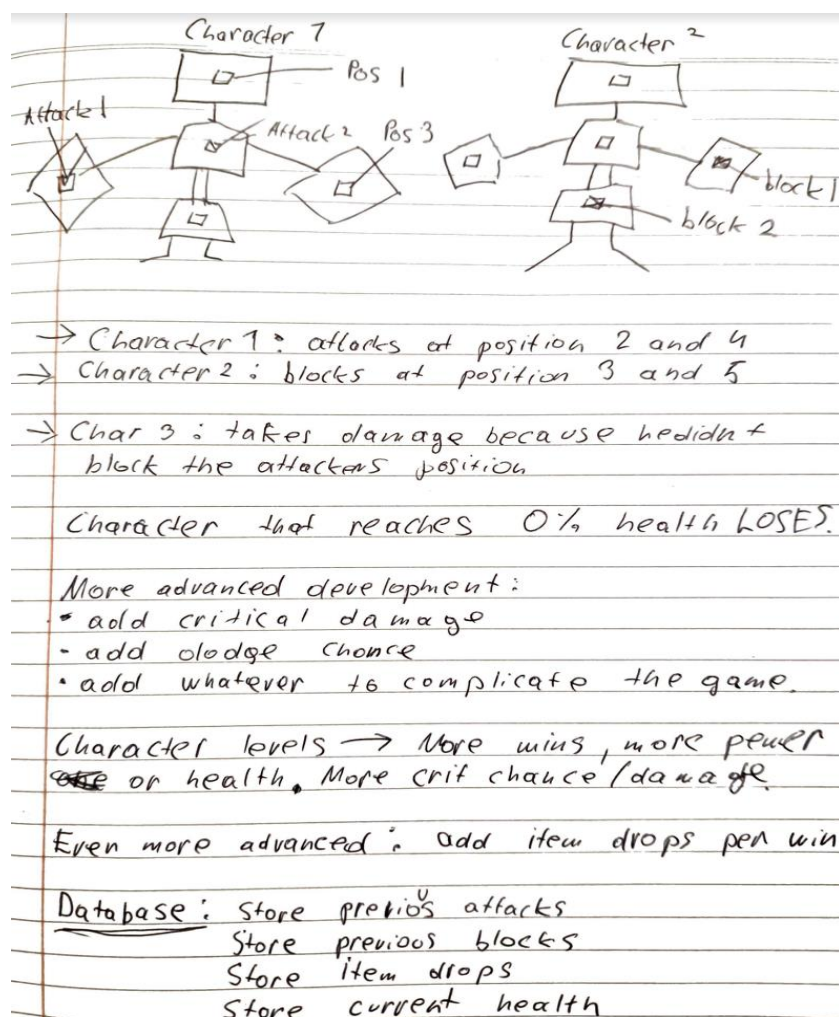 Character 1
Character 2
Pos 1
Attack 1
Attack 2
Pos 3
block 1
block 2
→ Character 1: attacks at position 2 and 4
→ Character 2: blocks at position 3 and 5
→ Char 3: takes damage because he didnt
block the attackers position
Character that reaches 0% health LOSES.
More advanced development:
• add critical damage
- add dodge chance
• add whatever to complicate the game.
Character levels → More wins, more power
or health. More crit chance/damage.
Even more advanced: add item drops per win
Database: Store previous attacks
Store previous blocks
Store item drops
Store current health